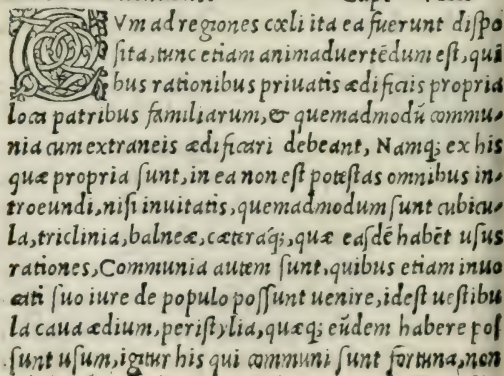 CVm ad regiones cœli ita ea fuerunt dispo
sita, tunc etiam animaduertēdum est, qui
bus rationibus priuatis ædificiis propria
loca patribus familiarum, & quemadmodū commu-
nia cum extraneis ædificari debeant, Namq; ex his
quæ propria sunt, in ea non est potestas omnibus in-
troeundi, nisi inuitatis, quemadmodum sunt cubicu-
la, triclinia, balneæ, cæteráq;, quæ easdē habēt usus
rationes, Communia autem sunt, quibus etiam inuo
cati suo iure de populo possunt uenire, idest uestibu
la caua ædium, peristylia, quæq; eūdem habere pos
sunt usum, igitur his qui communi sunt fortuna, non